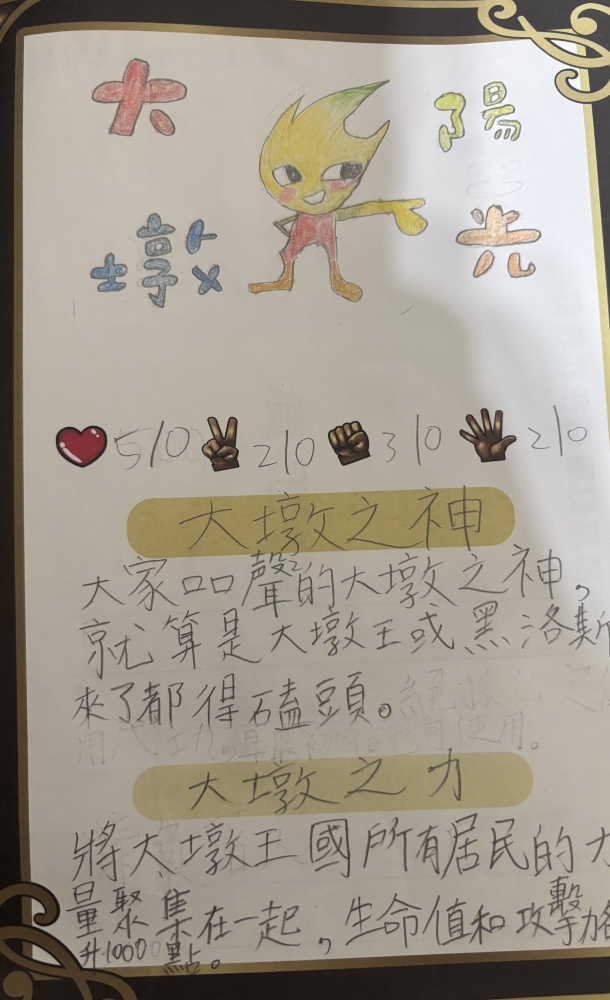 大墩 陽光
510 210 310 210
大墩之神
大家口口聲的大墩之神,
就算是大墩王或黑洛斯
來了都得磕頭。
用成功,
可使用。
大墩之力
將大墩王國所有居民的力
量聚集在一起,生命值和攻擊力各
升1000點。